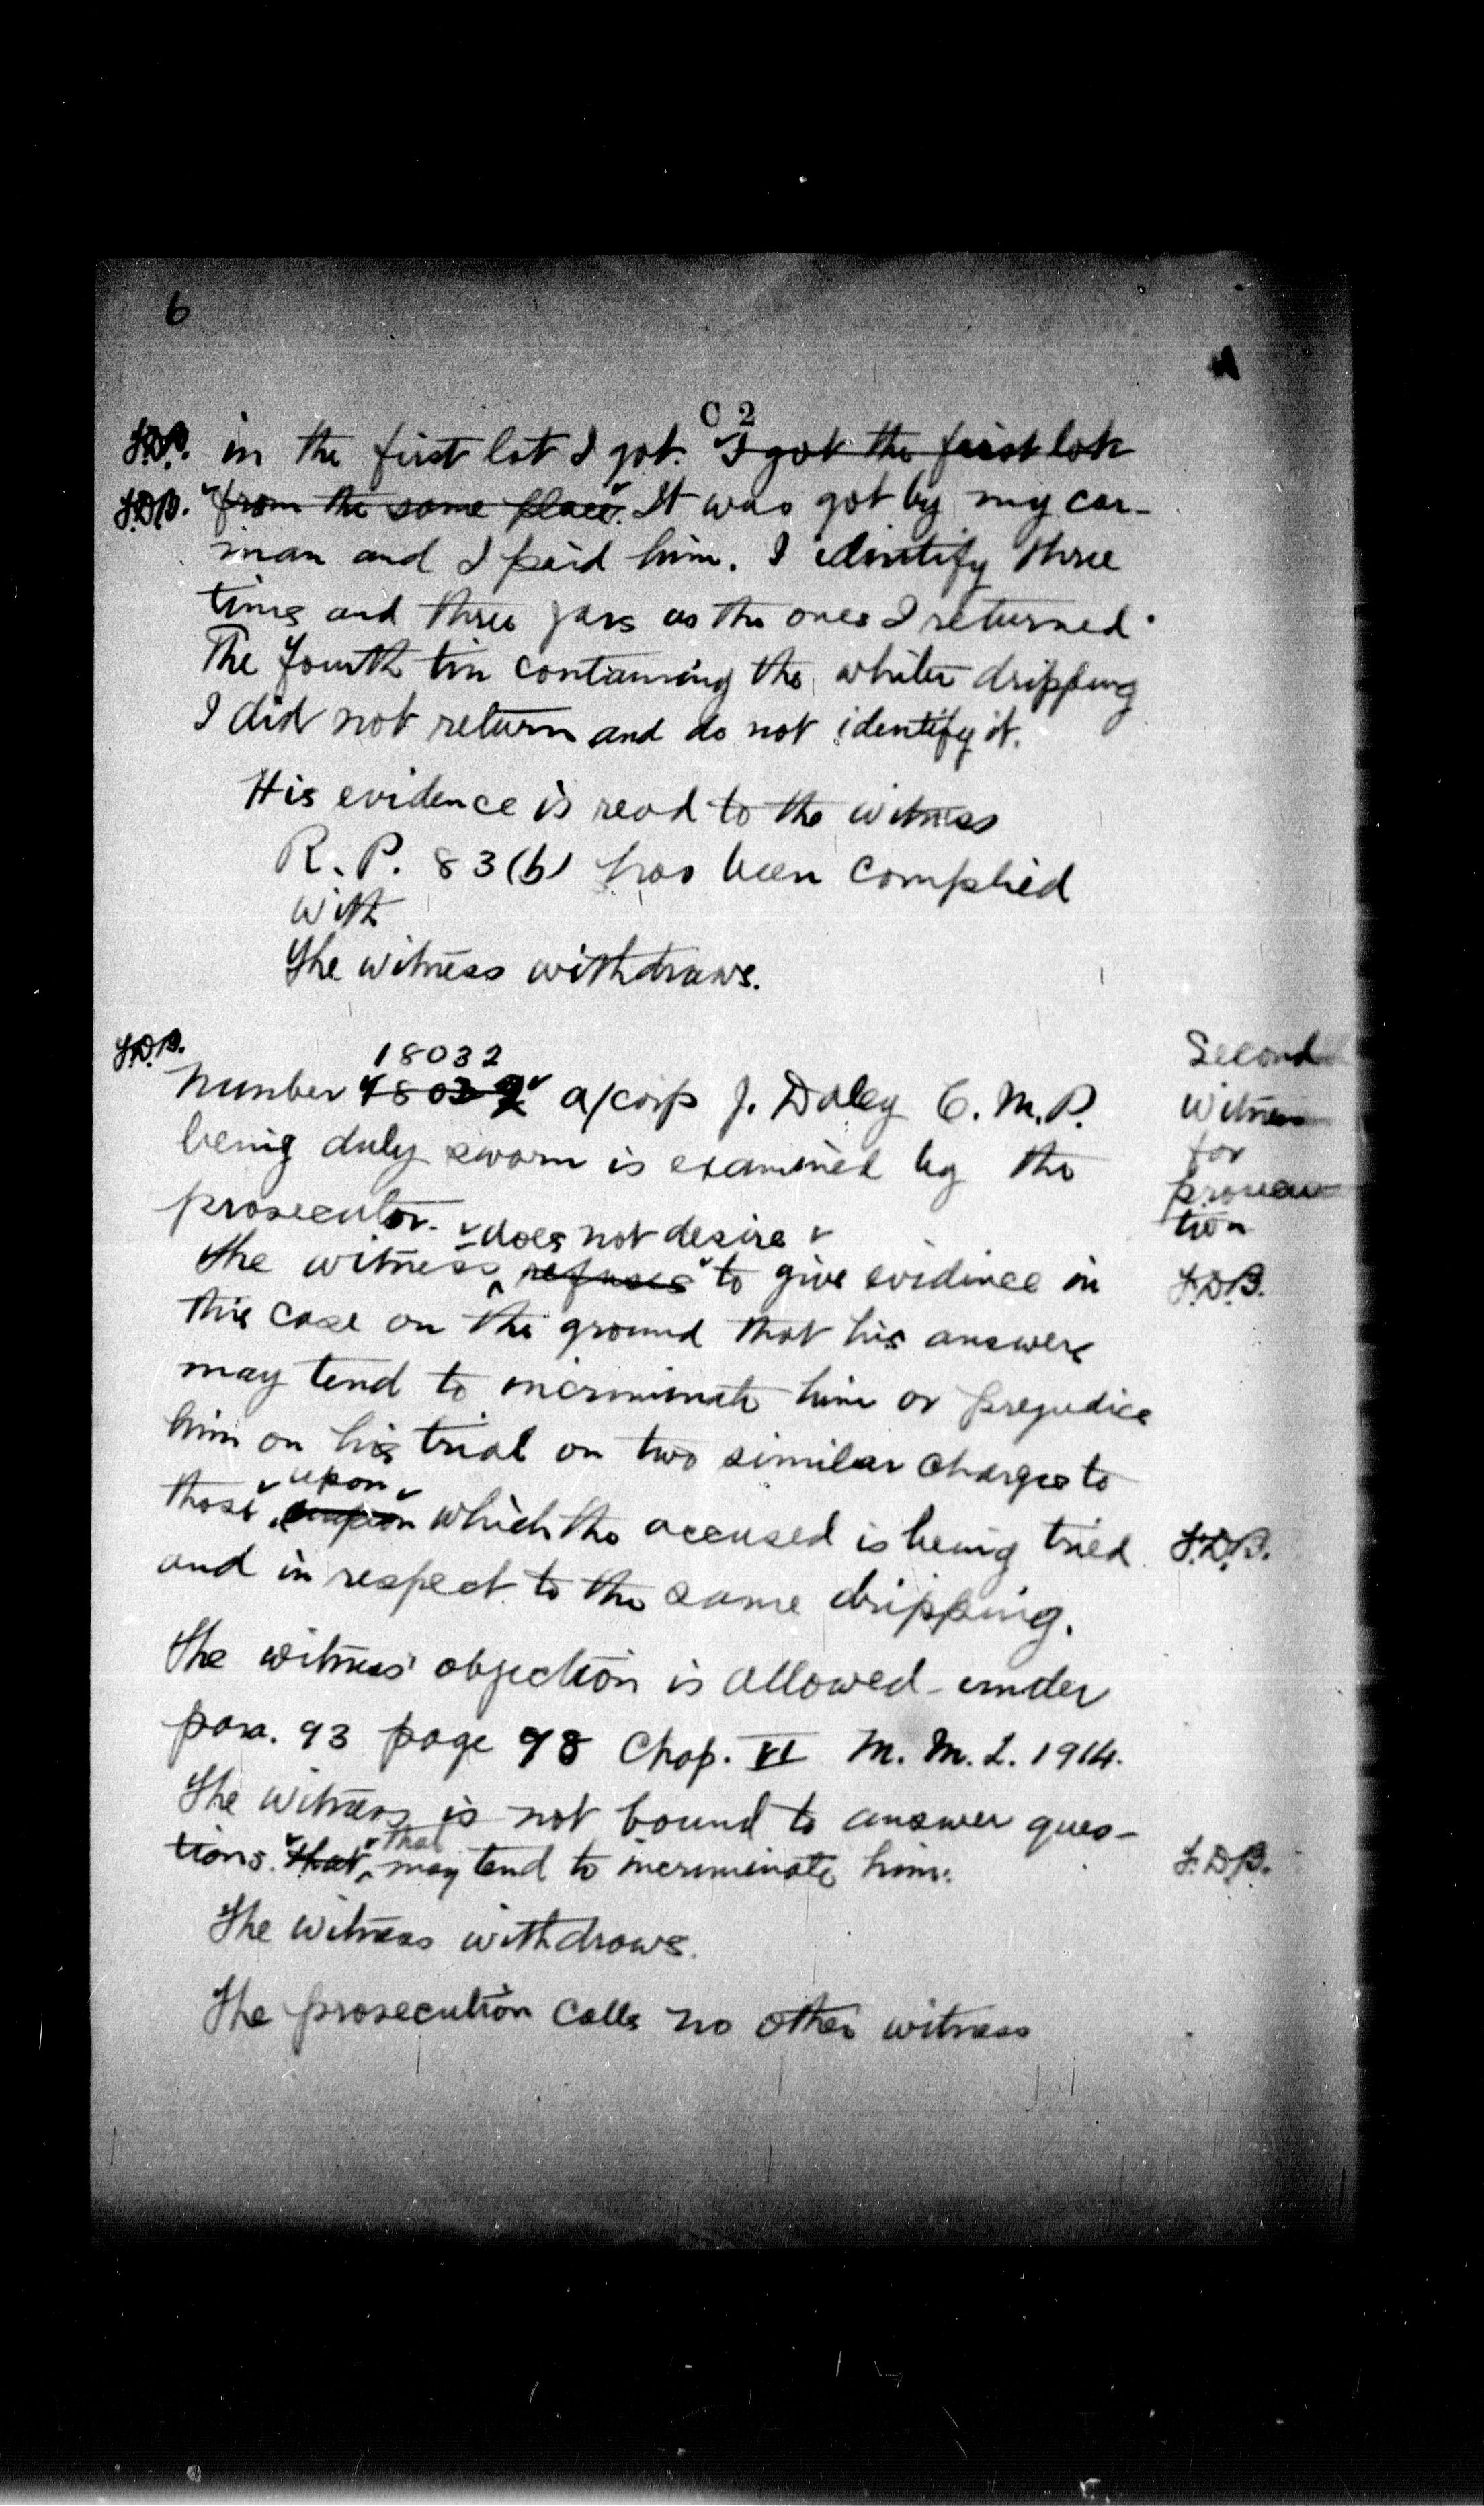 6
C 2
F.D.B. in the first lot I got. I got the first lot
F.D.B. from the same place. It was got by my car-
man and I paid him. I identify three
tins and three jars as the ones I returned.
The fourth tin containing the whiter dripping
I did not return and do not identify it.
His evidence is read to the witness
R.P. 83(b) has been complied
with
The witness withdraws.
F.D.B.
18032
Number 18032 a/corp J. Daley C.M.P.
being duly sworn is examined by the
prosecutor.
Second
Witness
for
prosecu
tion
does not desire
The witness refuses to give evidence in F.D.B.
this case on the ground that his answers
may tend to incriminate him or prejudice
him on his trial on two similar charges to
upon
those which the accused is being tried F.D.B.
and in respect to the same dripping.
The witness' objection is allowed under
para. 93 page 98 Chap. VI M.M.L. 1914.
The witness is not bound to answer ques-
that
tions. that may tend to incriminate him. F.D.B.
The witness withdraws.
The prosecution calls no other witness